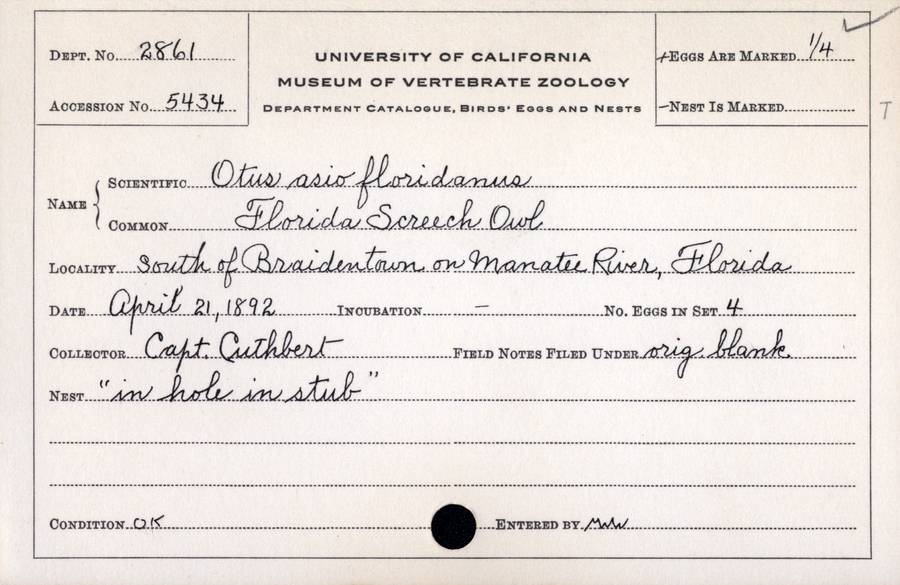 Dept. No. 2861
Accession No. 5434
UNIVERSITY OF CALIFORNIA
MUSEUM OF VERTEBRATE ZOOLOGY
Department Catalogue, Birds' Eggs and Nests
+Eggs Are Marked 1/4
-Nest Is Marked
T
Name { Scientific Otus asio floridanus
Common Florida Screech Owl
Locality South of Braidentown on Manatee River, Florida
Date April 21, 1892 Incubation — No. Eggs in Set 4
Collector Capt. Cuthbert Field Notes Filed Under orig. blank.
Nest "in hole in stub"
Condition OK Entered by